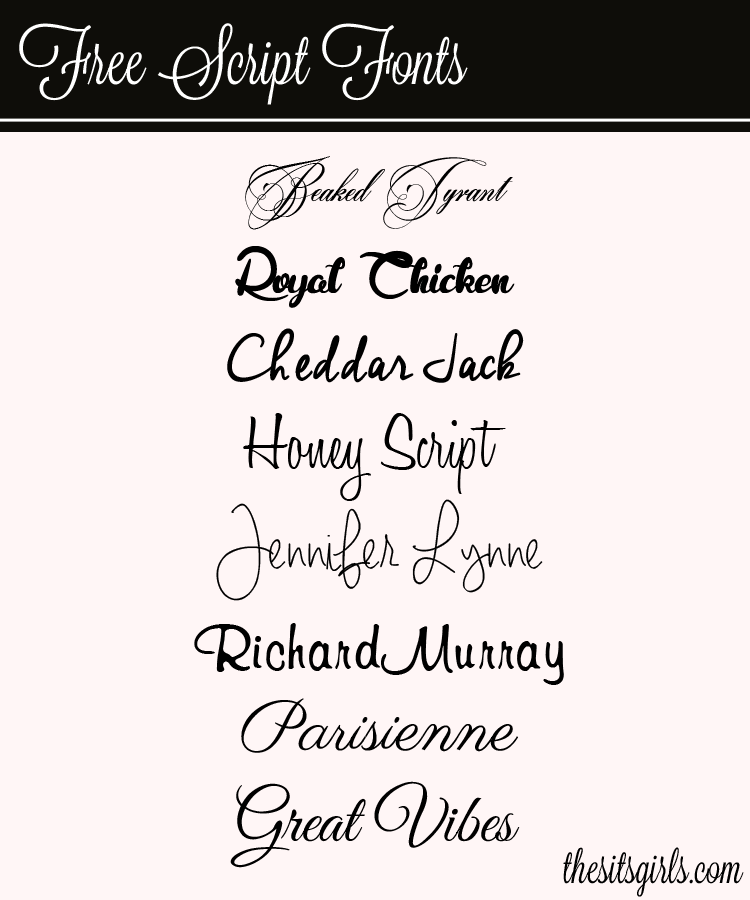 Free Script Fonts
Beaked Tyrant
Royal Chicken
Cheddar Jack
Honey Script
Jennifer Lynne
Richard Murray
Parisienne
Great Vibes
thesitsgirls.com